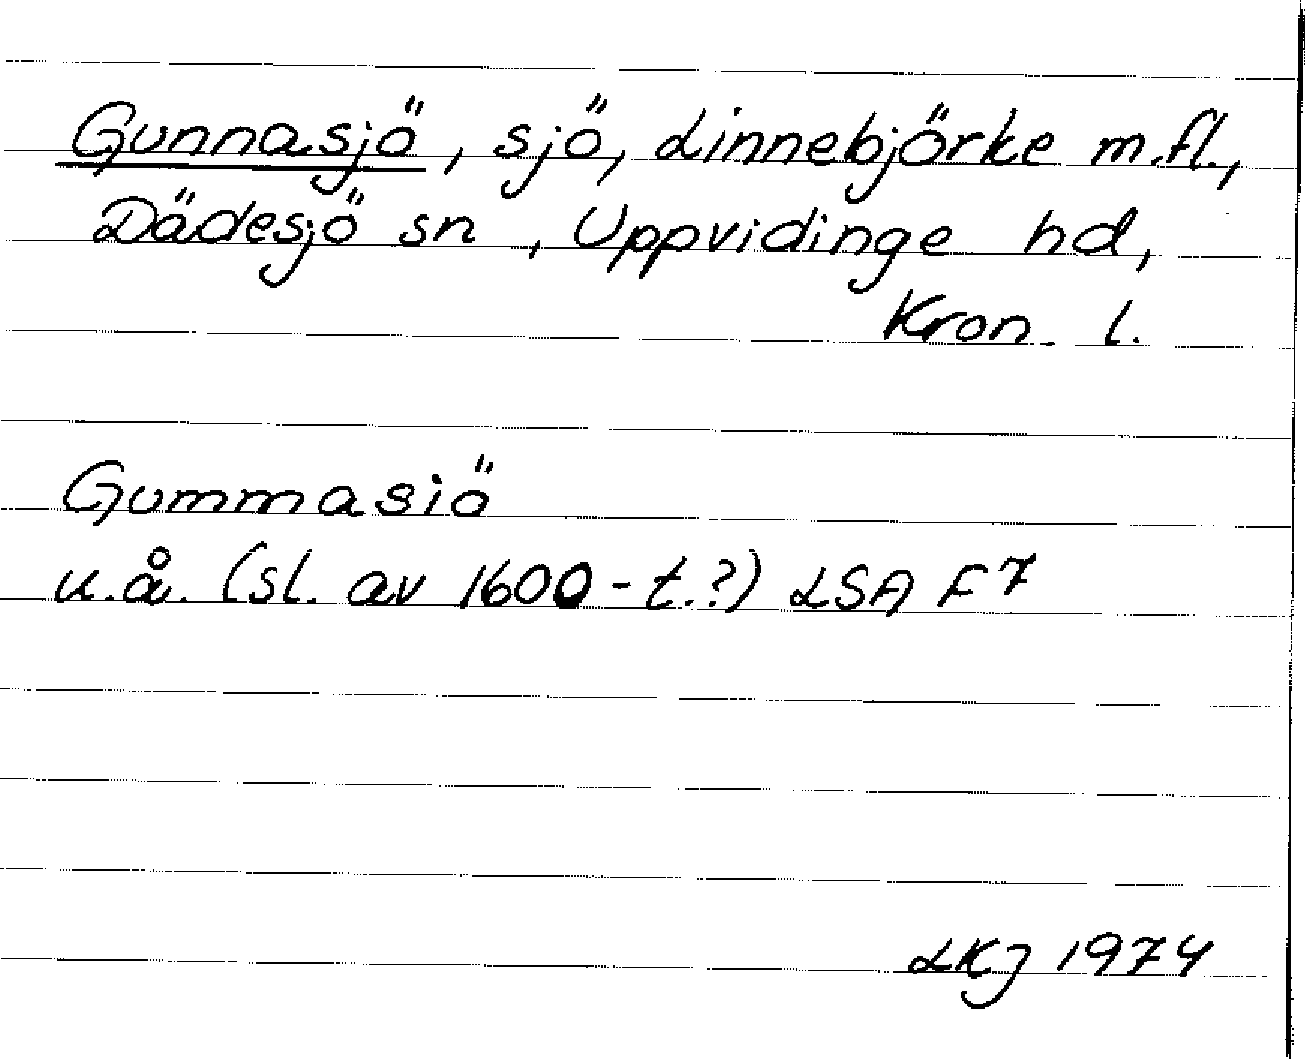 Gunnasjö, sjö, Linnebjörke m.fl.,
Dädesjö sn, Uppvidinge hd,
Kron. l.
Gummasiö
u.å. (sl. av 1600-t.?) LSA F7
LKJ 1974